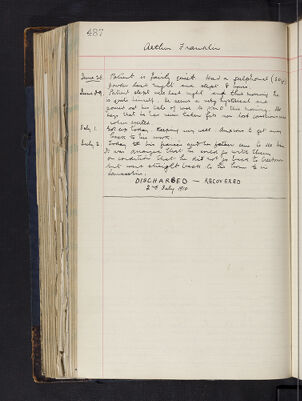 487
Arthur Franklin
June 28 Patient is fairly quiet. Had a sulphonal (30 gr)
powder last night and slept 8 hours.
June 29. Patient slept well last night and this morning he
is quite himself. He seems a very hysterical and
poured out his tale of woe to the M.O. this morning. He
says that he has never taken fits nor lost consciousness
July 1. Got up today. Keeping very well. Anxious to get away
back to his work.
July 2 Today his fiancee and her father came to see him
It was arranged that he could go with them
on condition that he did not go back to
but went straight back to his home in
Lancashire.
DISCHARGED — RECOVERED
2nd July 1910